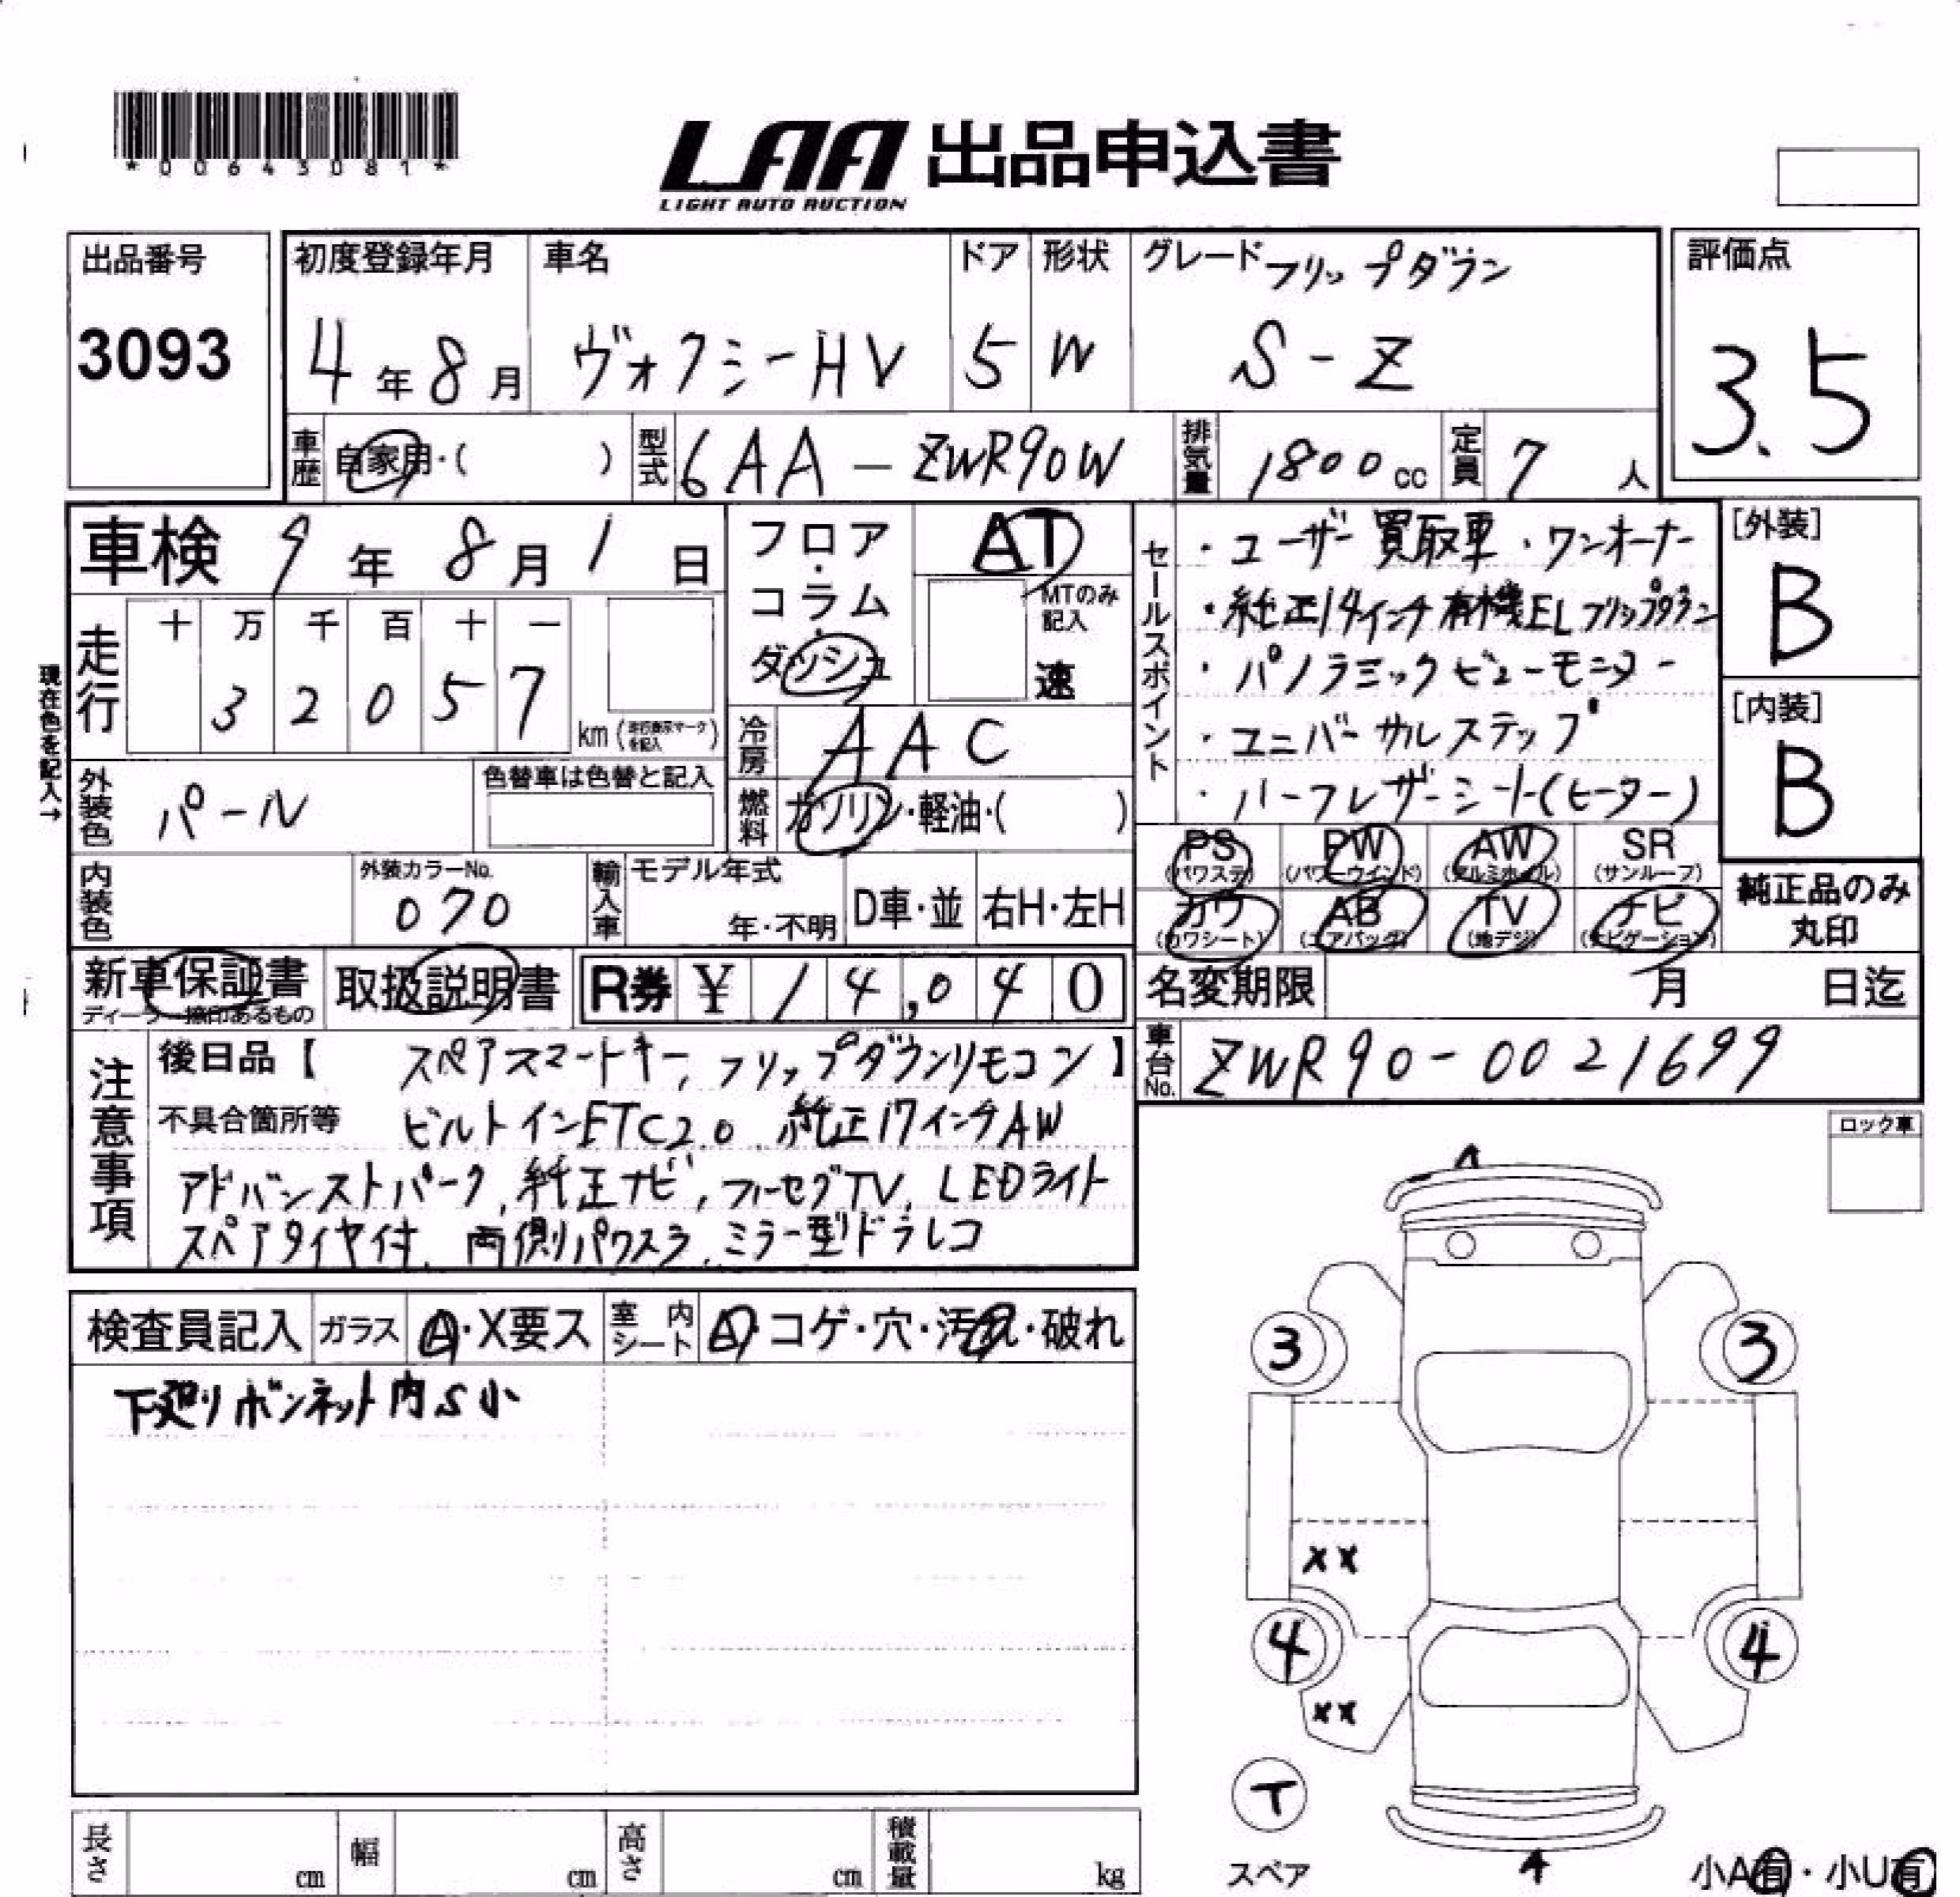 *00643081*
LAA 出品申込書
LIGHT AUTO AUCTION
出品番号 3093
初度登録年月 4年8月
車名 ヴォクシーHV
ドア 5
形状 W
グレード フリップダウン
S-Z
評価点 3.5
車歴 自家用・( )
型式 6AA-ZWR90W
排気量 1800cc
定員 7人
車検 9年8月1日
フロア・コラム・ダッシュ
AT
MTのみ記入
速
走行 十 万 千 百 十 一
3 2 0 5 7 km
現在色を記入→
冷房 AAC
外装色 パール
色替車は色替と記入
燃料 ガソリン・軽油・( )
内装色
外装カラーNo. 070
輸入車 モデル年式 年・不明
D車・並 右H・左H
セールスポイント
・ユーザー買取車・ワンオーナー
・純正14インチ有機ELフリップダウン
・パノラミックビューモニター
・ユニバーサルステップ
・ハーフレザーシート(ヒーター)
[外装] B
[内装] B
PS (パワステ) PW (パワーウインド) AW (アルミホイル) SR (サンルーフ)
カワ (カワシート) AB (エアバッグ) TV (地デジ) ナビ (ナビゲーション)
純正品のみ丸印
新車保証書
ディーラー捺印あるもの
取扱説明書
R券 ¥14,040
名変期限 月 日迄
車台No. ZWR90-0021699
注意事項
後日品【 スペアスマートキー, フリップダウンリモコン 】
不具合箇所等 ビルトインETC2.0 純正17インチAW
アドバンストパーク, 純正ナビ, フルセグTV, LEDライト
スペアタイヤ付, 両側パワスラ, ミラー型ドラレコ
ロック車
検査員記入 ガラス A・X要ス 室内シート A・コゲ・穴・汚れ・破れ
下廻りボンネット内S小
A
3 3
XX
4 4
XX
T
スペア
A
小A有・小U有
長さ cm 幅 cm 高さ cm 積載量 kg